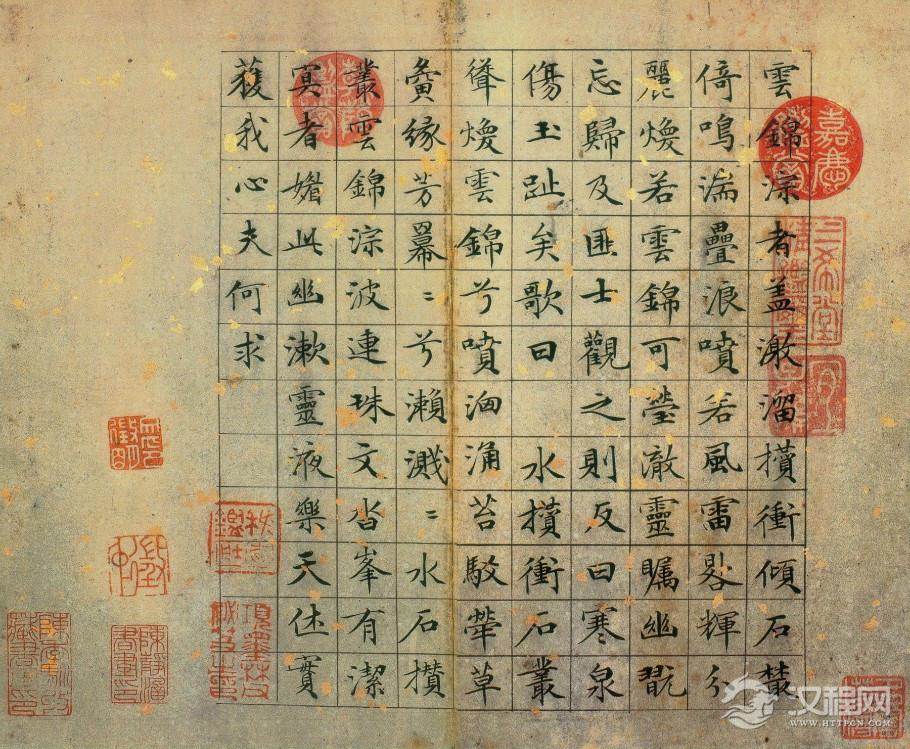 雲錦淙者蓋激溜攢衝傾石藂
倚鳴湍疊浪噴若風雷晷輝分
麗煥若雲錦可瑩徹靈矚幽翫
忘歸及匪士觀之則反曰寒泉
傷玉趾矣歌曰 水攢衝石叢
聳煥雲錦兮噴洶涌苔駮犖草
夤緣芳羃〻兮瀨濺〻水石攢
叢雲錦淙波連珠文沓峯有潔
冥者媚此幽漱靈液樂天休實
獲我心夫何求
三希堂精鑒璽
宜子孫
汉程网
WWW.HTTPCN.COM